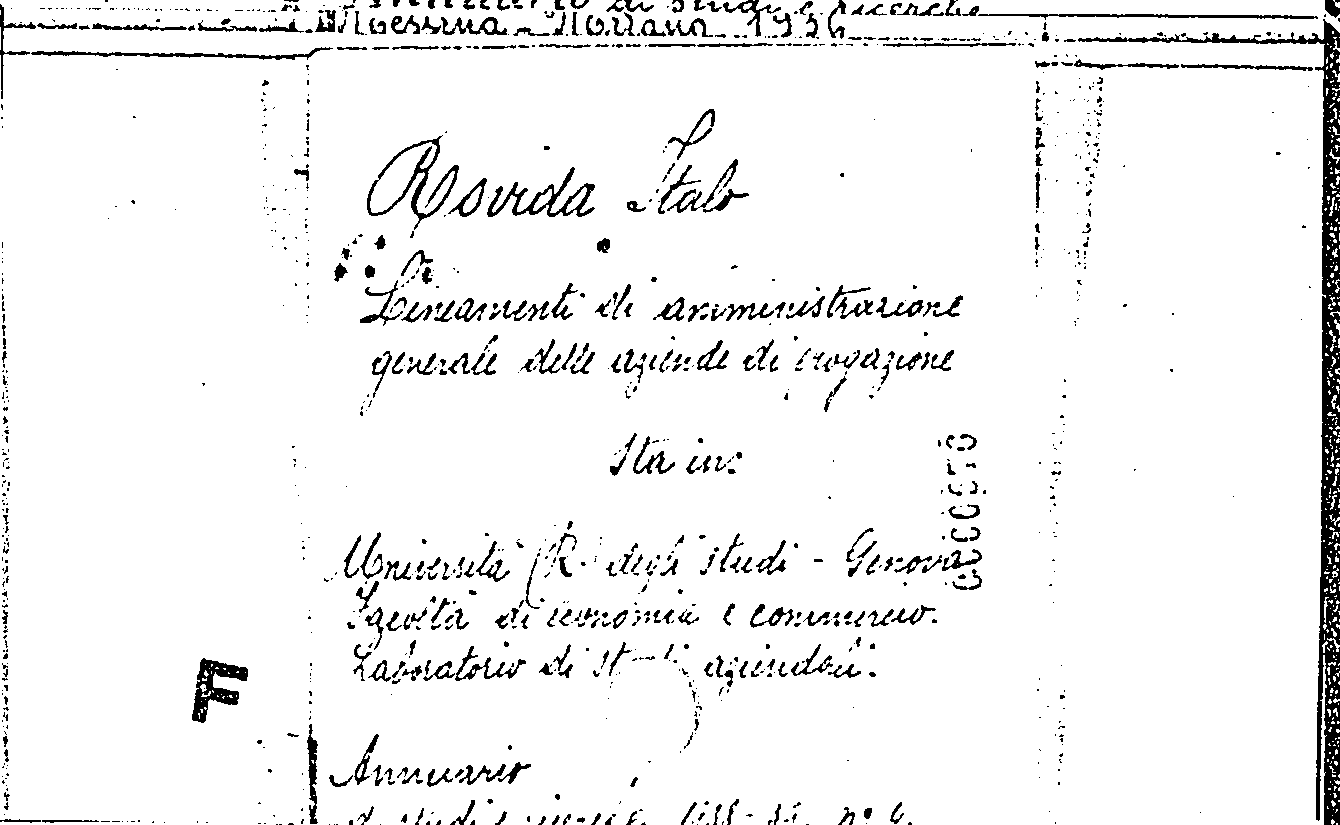 Annuario di studi e ricerche
Messina - Milano 1936
Rovida Italo
Lineamenti di amministrazione
generale delle aziende di erogazione
Sta in:
Università (R.) degli studi - Genova
Facoltà di economia e commercio.
Laboratorio di studi aziendali.
F
Annuario
di studi e ricerche